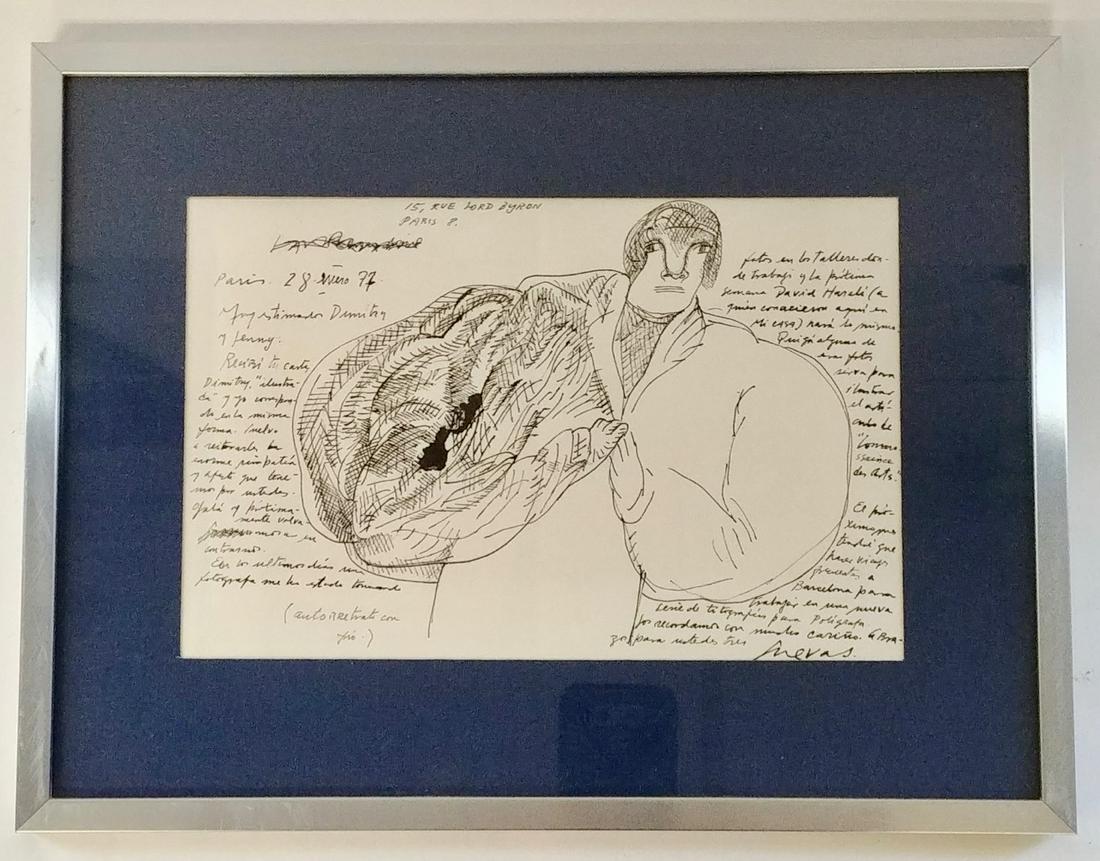 15, RUE LORD BYRON
PARIS 8.
Paris. 28 enero 77.
Muy estimados Dimitry
y Jenny.
Recibí tu carta
Dimitry, "ilustra-
da" y yo correspon-
do en la misma
forma. Vuelvo
a reiterarles la
enorme simpatía
y afecto que tene-
mos por ustedes.
Ojalá y próxima-
mente volva-
mos a en
contrarnos.
En los ultimos dias una
fotografa me ha estado tomando
(autorretrato con
frío.)
fotos en los talleres don-
de trabajo y la próxima
semana David (a
quien conocieron aquí en
mi casa) hará lo mismo.
Quizá alguna de
esas fotos
sirva para
ilustrar
el artí-
culo de
"Connai
ssance
des Arts".
El pró-
ximo mes
tendré que
hacer viajes
frecuentes a
Barcelona para
trabajar en una nueva
serie de litografías para Polígrafa
los recordamos con mucho cariño. Abra-
zos para ustedes tres
Cuevas.